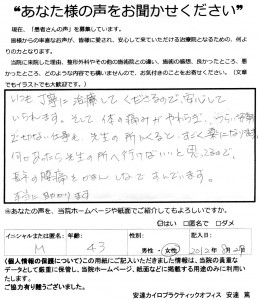 "あなた様の声をお聞かせください"
現在、「患者さんの声」を募集しています。
皆様からの率直なお声が、皆様に愛され、安心して来ていただける治療院となるための、何よりの力となります。
当院に来院した理由、整形外科やその他の施術院との違い、施術の感想、良かったところ、悪かったところ、どのような内容でも構いませんので、お気付きのことをお寄せください。(文章でもイラストでも大歓迎です。)
いつも丁寧に治療してくださるので、安心して
いられます。そして体の痛みがやわらぎ、つらい
できない仕事も、先生の所にくると、すごく楽になり
何かあったら先生の所へ行けばいいと思ってるので、
長年の腰痛を
とても助かります
※あなたの声を、当院ホームページや紙面でご紹介してもよろしいですか。
□はい □匿名で □ダメ
イニシャルまたは匿名: 年齢: 記入日:
M 43 男性・女性 2012年
《個人情報の保護について》この用紙にご記入いただきました情報は、当院の貴重なデータとして厳重に保管し、当院ホームページ、紙面などに掲載する用途のみに利用いたします。
ご協力有り難うございました。
安達カイロプラクティックオフィス 安達 篤